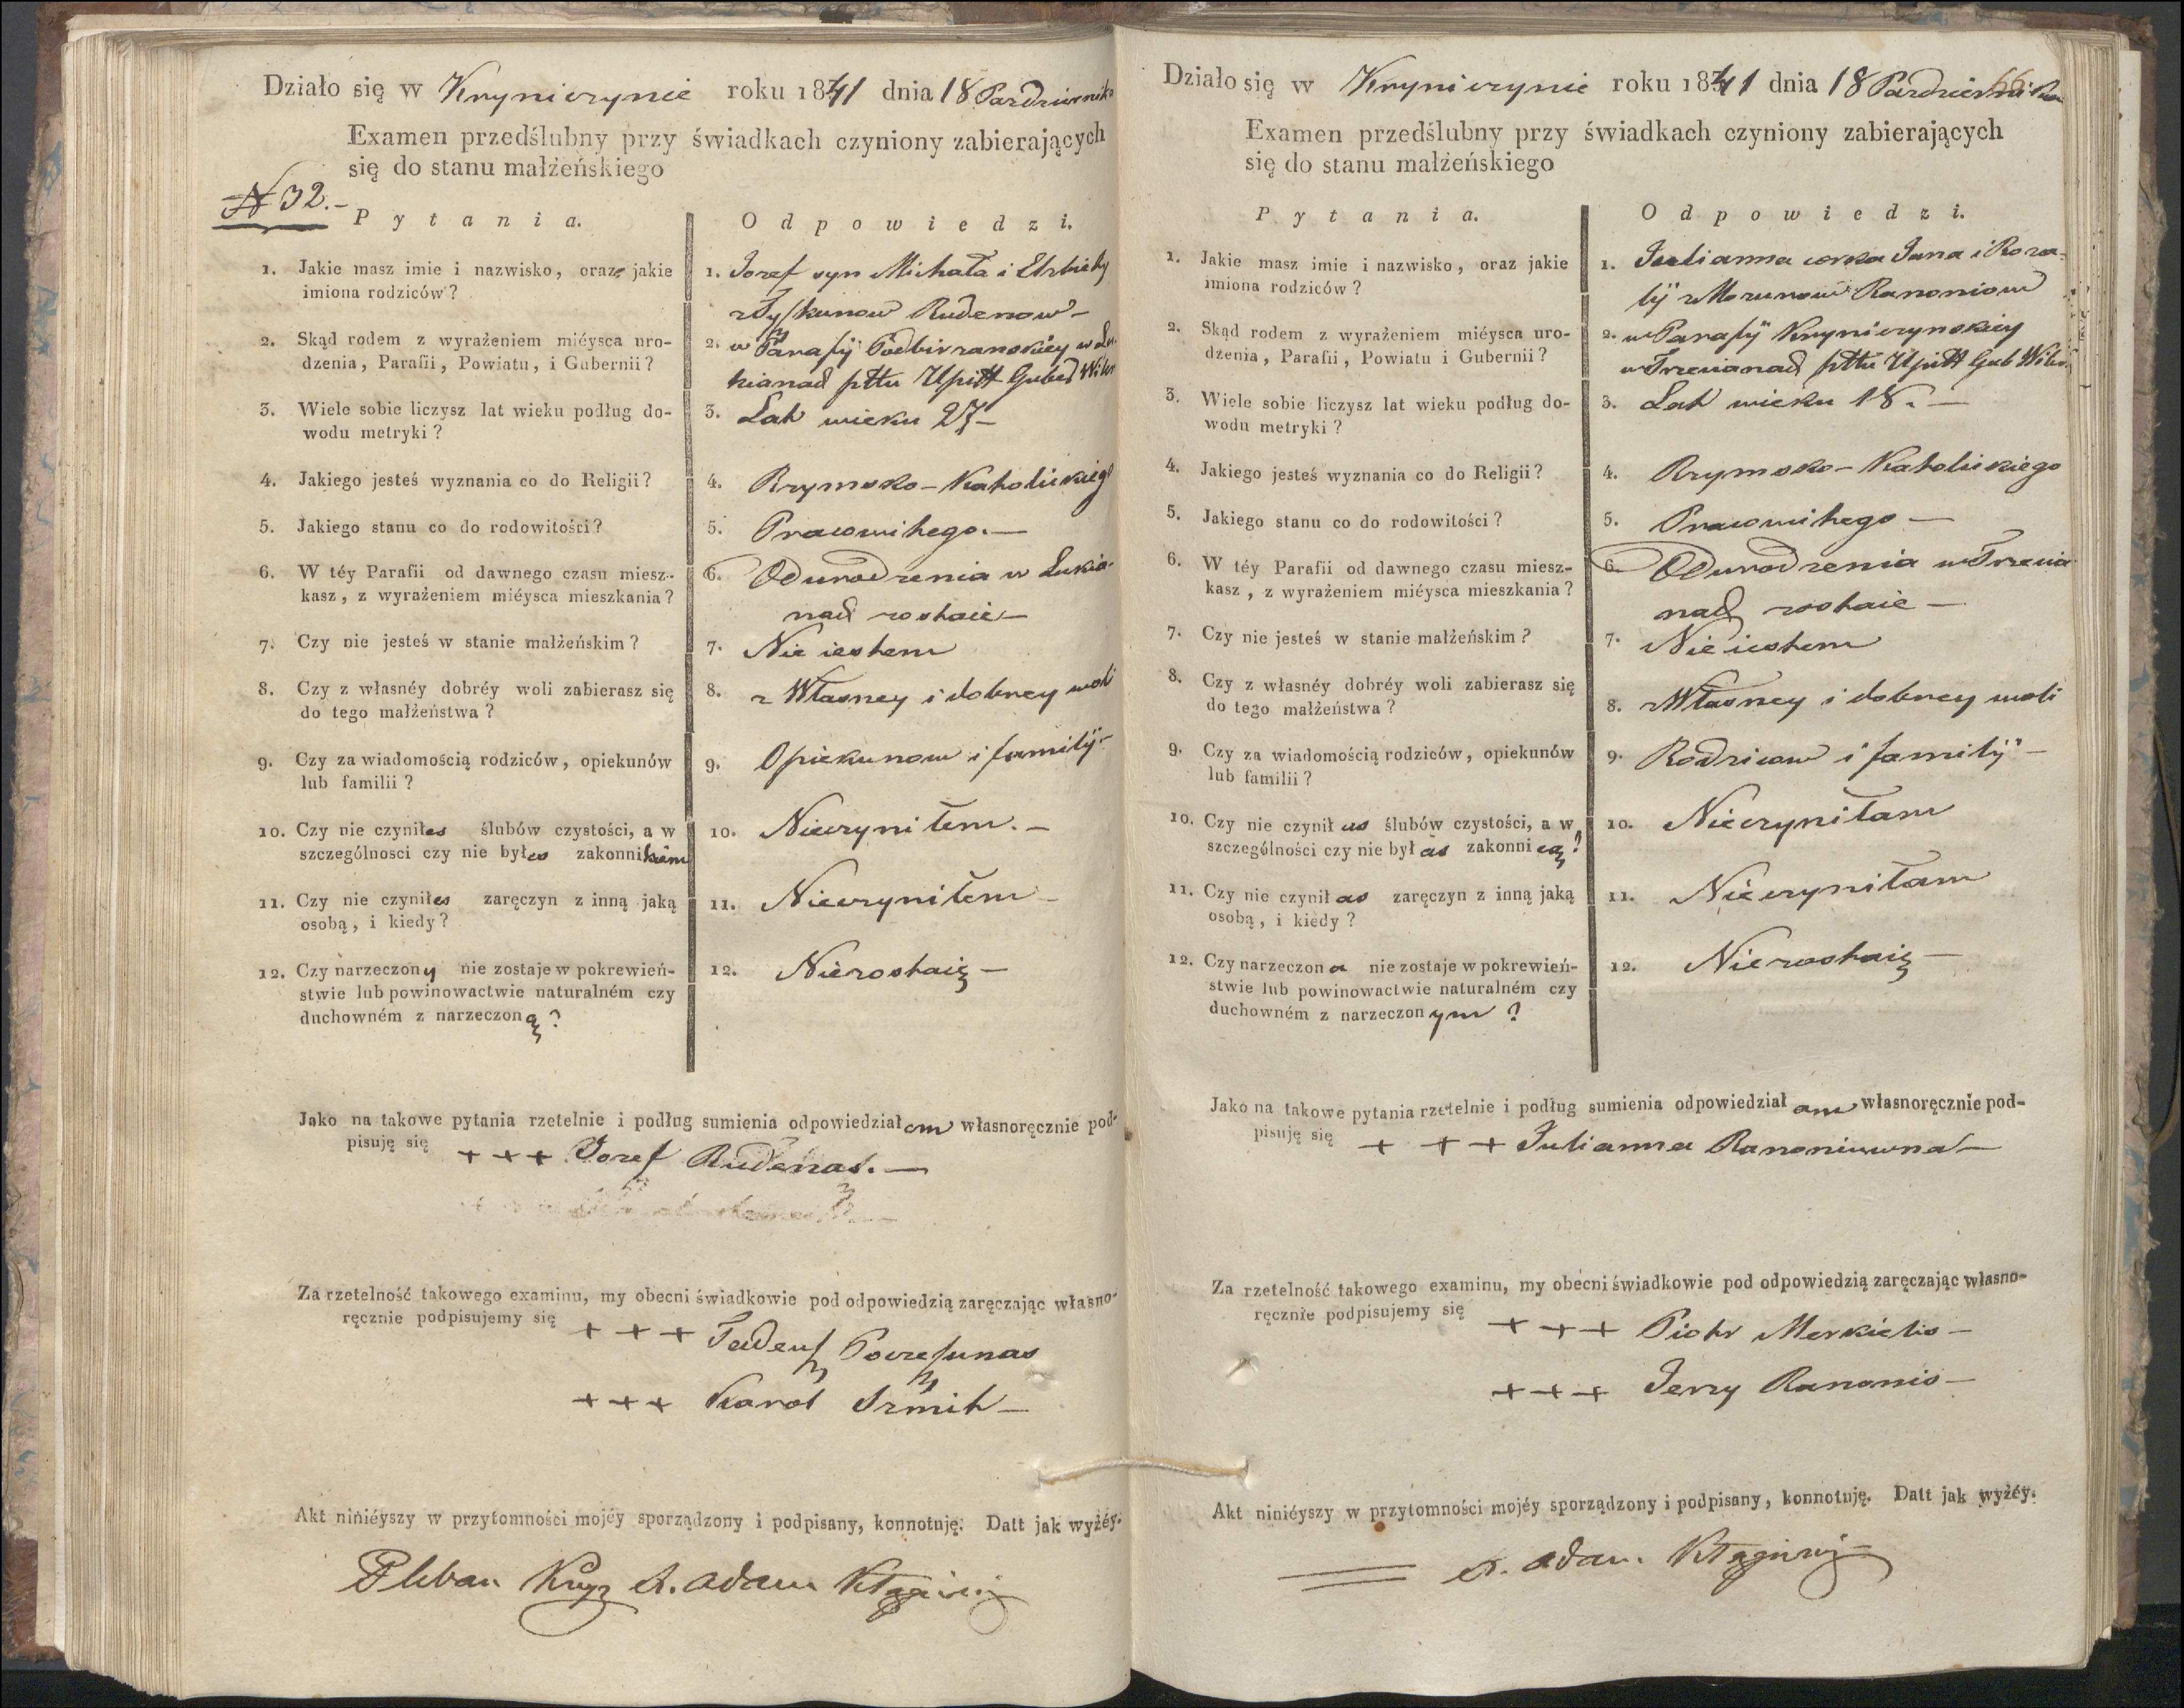 Działo się w Kryniczynie roku 1841 dnia 18 Pazdziernika
Examen przedślubny przy świadkach czyniony zabierających
się do stanu małżeńskiego
N 32.-
Pytania.
Odpowiedzi.
1. Jakie masz imie i nazwisko, oraz jakie
imiona rodziców?
1. Jozef syn Michała i Elzbiety
Rudenow
2. Skąd rodem z wyrażeniem miéysca uro-
dzenia, Parafii, Powiatu, i Gubernii?
2. w Parafij Podbirzanskiey w Lu-
kianad pttu Upitt Guber Wilen
3. Wiele sobie liczysz lat wieku podług do-
wodu metryki?
3. Lat wieku 27-
4. Jakiego jesteś wyznania co do Religii?
4. Rzymsko-Katolickiego
5. Jakiego stanu co do rodowitości?
5. Pracowitego.-
6. W téy Parafii od dawnego czasu miesz-
kasz, z wyrażeniem miéysca mieszkania?
6. Od urodzenia w Lukia-
nad zostaie-
7. Czy nie jesteś w stanie małżeńskim?
7. Nie iestem
8. Czy z własnéy dobréy woli zabierasz się
do tego małżeństwa?
8. z Własney i dobrey woli
9. Czy za wiadomością rodziców, opiekunów
lub familii?
9. Opiekunow i familij-
10. Czy nie czyniłes ślubów czystości, a w
szczególnosci czy nie byłes zakonnikiem
10. Nieczyniłem.-
11. Czy nie czyniłes zaręczyn z inną jaką
osobą, i kiedy?
11. Nieczyniłem-
12. Czy narzeczony nie zostaje w pokrewień-
stwie lub powinowactwie naturalném czy
duchowném z narzeczoną?
12. Niezostaię-
Jako na takowe pytania rzetelnie i podług sumienia odpowiedziałem własnoręcznie pod-
pisuję się +++ Jozef Rudenas.-
Za rzetelność takowego examinu, my obecni świadkowie pod odpowiedzią zaręczając własno-
ręcznie podpisujemy się +++ Tadeusz
+++ Karol Szmit-
Akt niniéyszy w przytomności mojéy sporządzony i podpisany, konnotuję. Datt jak wyżéy.
Pleban X. Adam
66
Działo się w Kryniczynie roku 1841 dnia 18 Pazdziernika
Examen przedślubny przy świadkach czyniony zabierających
się do stanu małżeńskiego
Pytania.
Odpowiedzi.
1. Jakie masz imie i nazwisko, oraz jakie
imiona rodziców?
1. Julianna corka Jana i Roza-
lij z Morunow Ranoniow
2. Skąd rodem z wyrażeniem miéysca uro-
dzenia, Parafii, Powiatu i Gubernii?
2. w Parafij Kryniczynskiey
w Trzeianad pttu Upitt Gub Wilen
3. Wiele sobie liczysz lat wieku podług do-
wodu metryki?
3. Lat wieku 18.-
4. Jakiego jesteś wyznania co do Religii?
4. Rzymsko-Katolickiego
5. Jakiego stanu co do rodowitości?
5. Pracowitego-
6. W téy Parafii od dawnego czasu miesz-
kasz, z wyrażeniem miéysca mieszkania?
6. Od urodzenia w Trzeia-
nad zostaie-
7. Czy nie jesteś w stanie małżeńskim?
7. Nie iestem
8. Czy z własnéy dobréy woli zabierasz się
do tego małżeństwa?
8. z Własney i dobrey woli
9. Czy za wiadomością rodziców, opiekunów
lub familii?
9. Rodzicow i familij-
10. Czy nie czynił as ślubów czystości, a w
szczególności czy nie był as zakonnicą?
10. Nieczyniłam
11. Czy nie czynił as zaręczyn z inną jaką
osobą, i kiedy?
11. Nieczyniłam
12. Czy narzeczona nie zostaje w pokrewień-
stwie lub powinowactwie naturalném czy
duchowném z narzeczonym?
12. Niezostaię-
Jako na takowe pytania rzetelnie i podług sumienia odpowiedziałam własnoręcznie pod-
pisuję się +++ Julianna Ranoniuwna-
Za rzetelność takowego examinu, my obecni świadkowie pod odpowiedzią zaręczając własno-
ręcznie podpisujemy się +++ Piotr Merkielis-
+++ Jerzy Ranonis-
Akt niniéyszy w przytomności mojéy sporządzony i podpisany, konnotuję. Datt jak wyżéy.
X. Adam